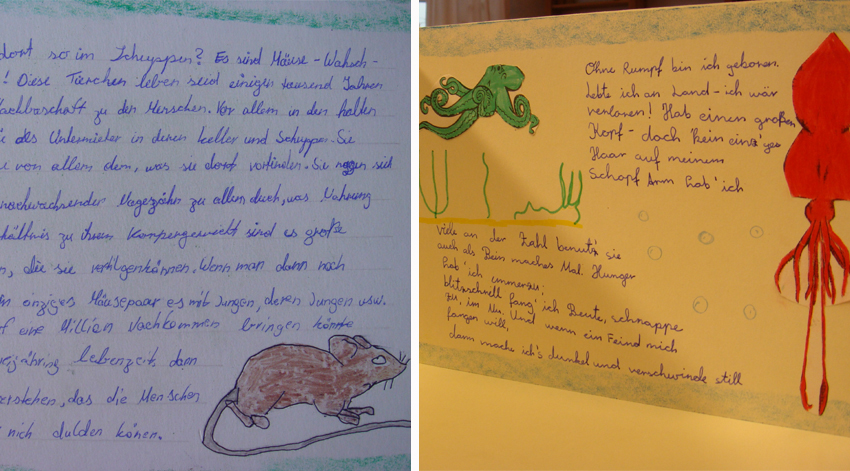 dort so im Scheuppen? Es sind Mäuse - Wahsch -
! Diese Tierchen leben seid einigen tausend Jahren
Nachbarschaft zu den Menschen. Vor allem in den kalten
des Unternieter in deren keller und Schupper. Sie
von allem dem, was sie dort vorfinden. Sie nagen sich
nachwachsender Nagezähn zu allem durch, was Nahrung
hältnis zu ihrem Körpergewicht sind es große
n, die sie vertilgen können. Wenn man dann noch
einziges Mäusepaar es mit Jungen, deren Jungen usw.
f eine Million Nachkommen bringen könnte
jährig lebenzeit, dann
verstehen, das die Menschen
nich dulden könen.
Ohne Rumpf bin ich geboren.
Lebte ich an Land - ich wär
verloren! Hab einen großen
Kopf - doch kein einz'ges
Haar auf meinem
Schopf Arm hab' ich
viele an der Zahl benutz' sie
auch als Bein maches Mal. Hunger
hab' ich immerzu:
blitzschnell fang' ich Beute, schnappe
zu, im Nu. Und wenn ein Feind mich
fangen will,
dann mache ich's dunkel und verschwinde still